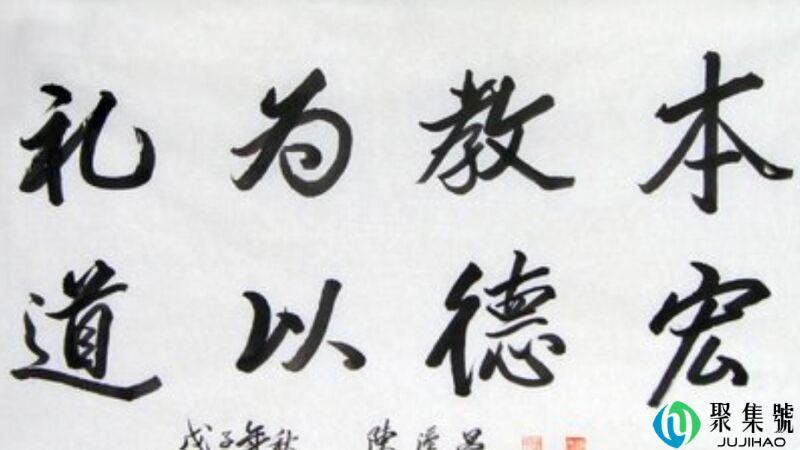 礼为教本
道以德宏
戊子年秋 陳
聚集號
JUJIHAO